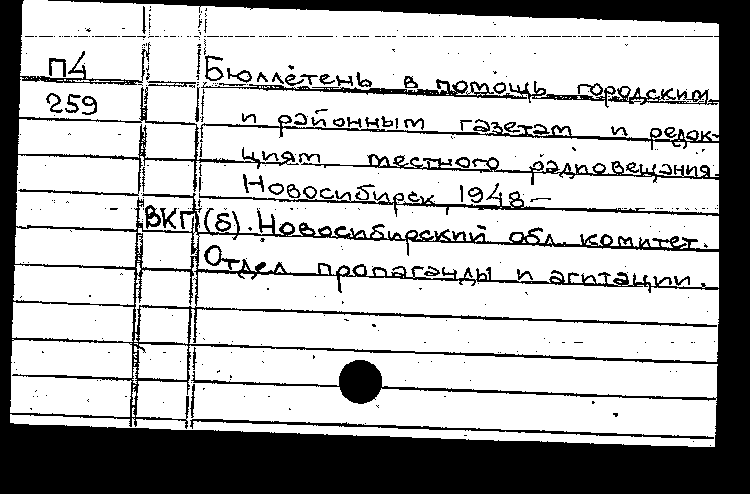 П4
259
Бюллетень в помощь городским
и районным газетам и редак-
циям местного радиовещания.
Новосибирск, 1948 –
ВКП(б). Новосибирский обл. комитет.
Отдел пропаганды и агитации.